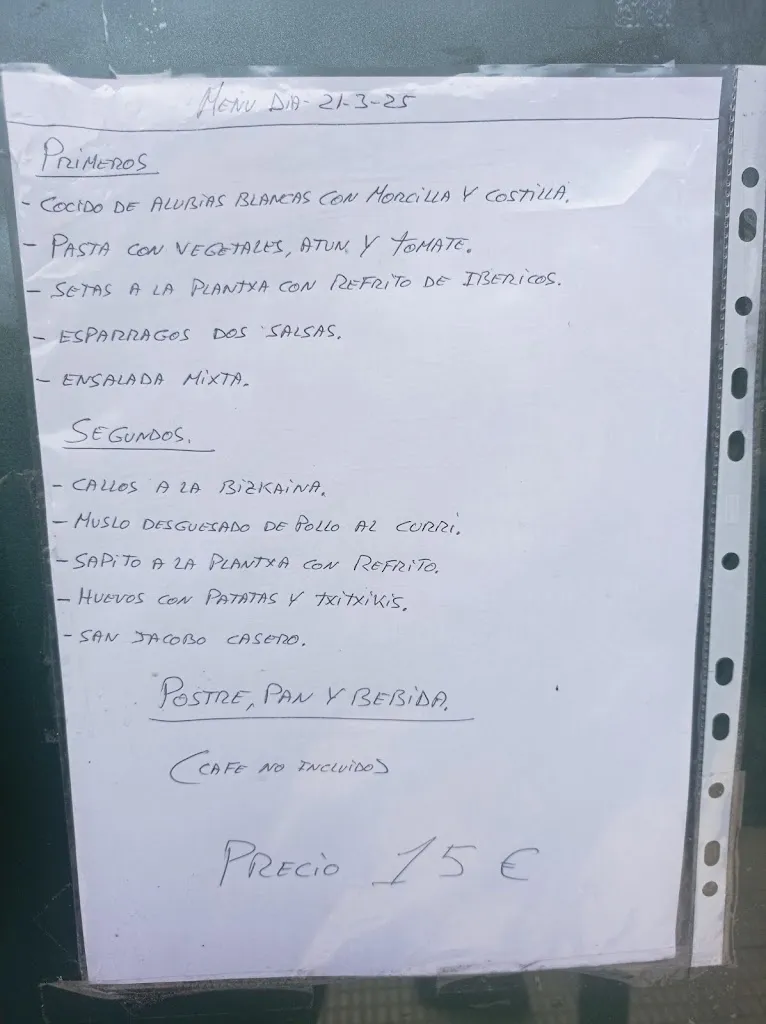 MENU DIA- 21-3-25
PRIMEROS
- COCIDO DE ALUBIAS BLANCAS CON MORCILLA Y COSTILLA.
- PASTA CON VEGETALES, ATUN. Y TOMATE.
- SETAS A LA PLANTXA CON REFRITO DE IBERICOS.
- ESPARRAGOS DOS SALSAS.
- ENSALADA MIXTA.
SEGUNDOS.
- CALLOS A LA BIZKAINA.
- MUSLO DESGUESADO DE POLLO AL CURRI.
- SAPITO A LA PLANTXA CON REFRITO.
- HUEVOS CON PATATAS Y TXITXIKIS.
- SAN JACOBO CASERO.
POSTRE, PAN Y BEBIDA.
(CAFE NO INCLUIDO)
PRECIO 15 €